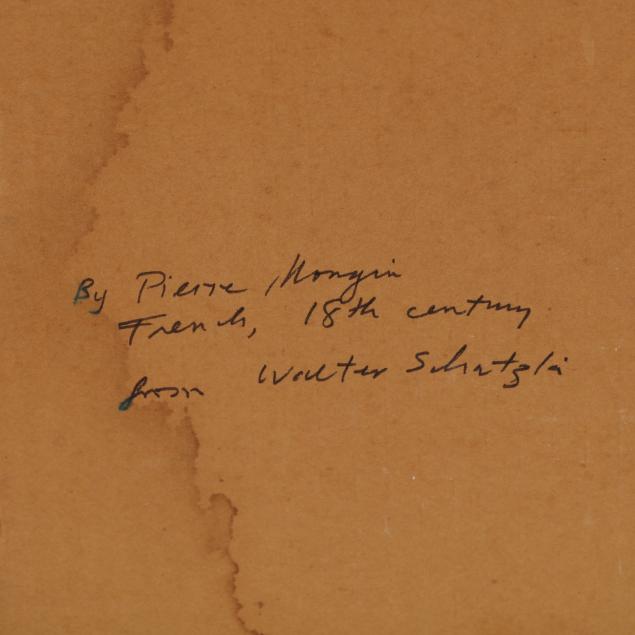 By Pierre Mongin
French, 18th century
from Walter Schatzki